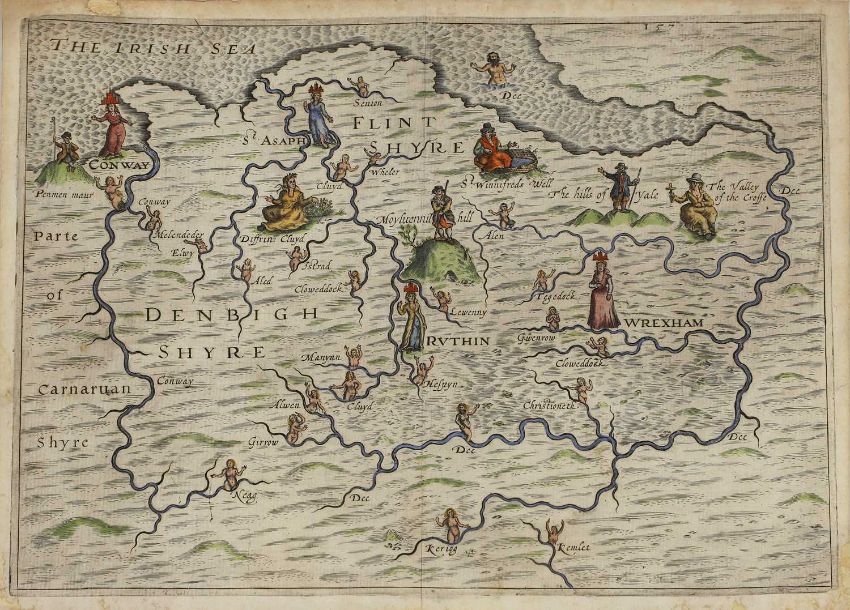 157
THE IRISH SEA
Dee
Senion
FLINT
SHYRE
St ASAPH
CONWAY
Penmen maur
Cluyd
Wheler
St Winnifreds Well
The hills of Yale
The Valley
of the Crosse
Dee
Conway
Melendeder
Elwy
Diffrin Cluyd
Moylivennill hill
Alen
Parte
of
Carnaruan
Shyre
Aled
Istrad
Cloweddock
Lewenny
Tegedock
DENBIGH
SHYRE
RVTHIN
WREXHAM
Gwenrow
Cloweddock
Manyan
Conway
Cluyd
Hespyn
Alwen
Christioneth
Girrow
Dee
Dee
Neag
Dee
Keriog
Kemlet